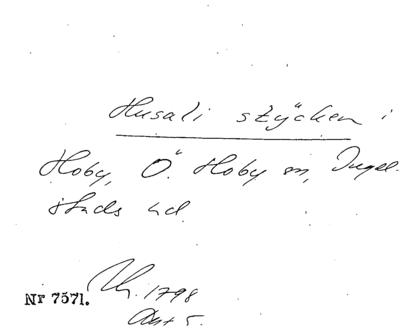 Husali stycken i
Hoby, Ö. Hoby sn, Ingel-
stads hd
Nr 7571. 1798
Akt 5.